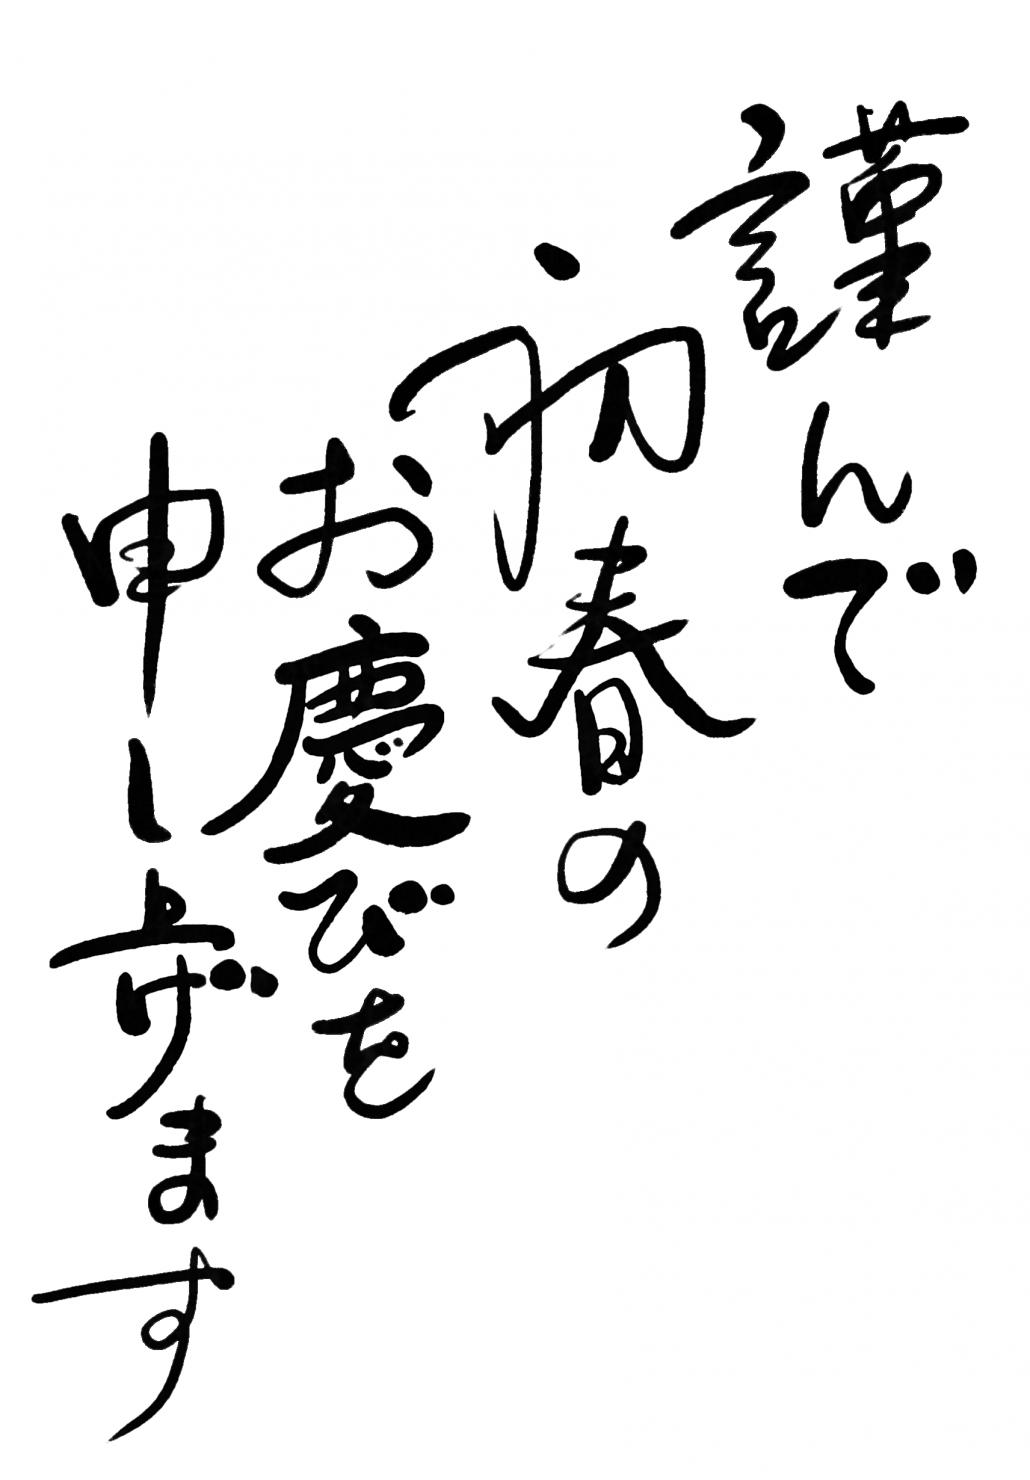 謹んで
初春の
お慶びを
申し上げます